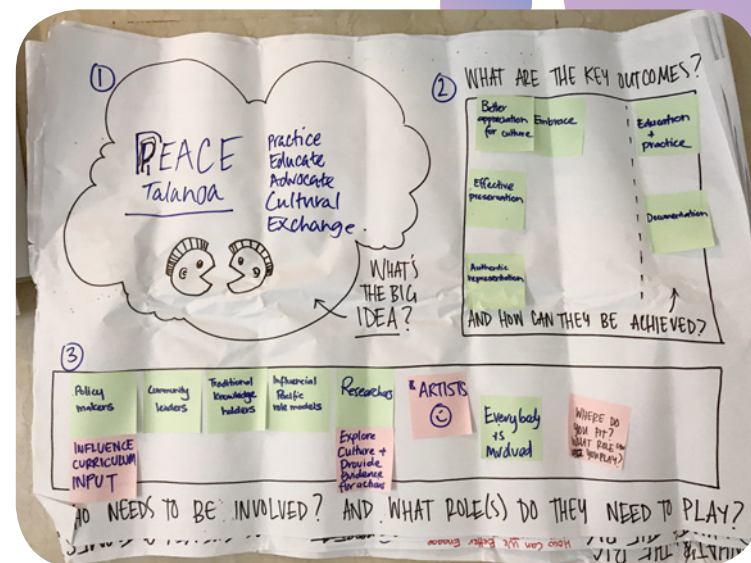 ①
PEACE
Talanoa
Practice
Educate
Advocate
Cultural
Exchange.
WHAT'S
THE BIG
IDEA?
② WHAT ARE THE KEY OUTCOMES?
Better
appreciation
for culture
Embrace
Education
+
practice
Effective
preservation
Documentation
Authentic
representation
AND HOW CAN THEY BE ACHIEVED?
③
Policy
makers
Community
leaders
Traditional
knowledge
holders
Influencial
Pacific
role models
Researchers
& ARTISTS
Everybody
is
WHERE DO
YOU FIT?
WHAT ROLE
YOU PLAY?
INFLUENCE
CURRICULUM
INPUT
Explore
Culture +
Provide
Evidence
for action
HO NEEDS TO BE INVOLVED? AND WHAT ROLE(S) DO THEY NEED TO PLAY?
How Can We Better Engage